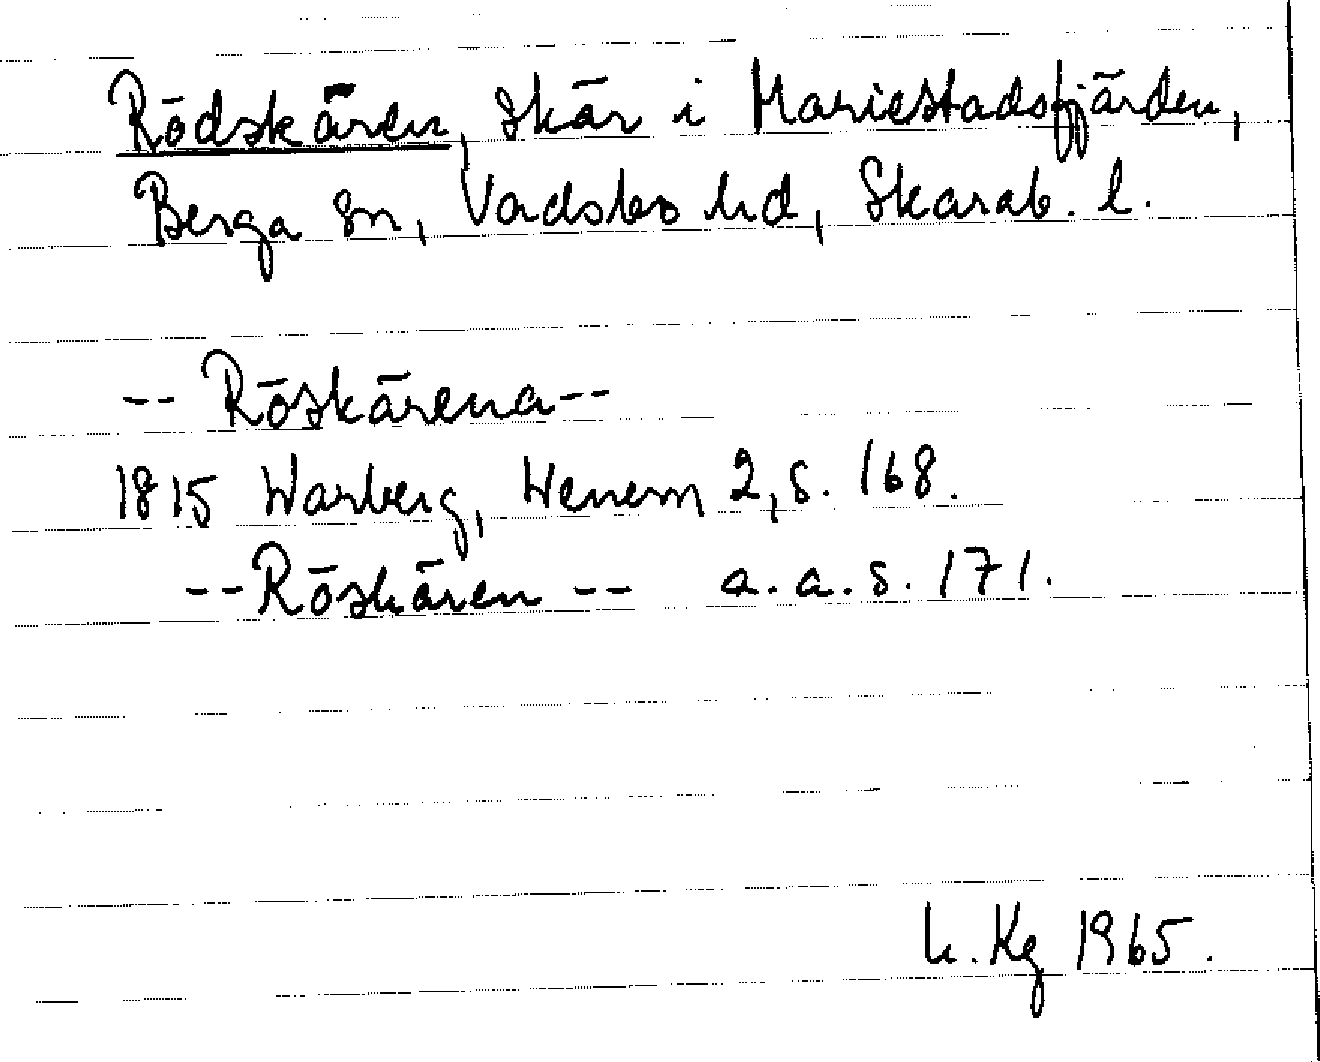 Rödskären, Skär i Mariestadsfjärden,
Berga sn, Vadsbo hd, Skarab. l.
-- Röskärena --
1815 Warberg, Wenern 2, s. 168.
-- Röskären -- a. a. s. 171.
h. Kg 1965.